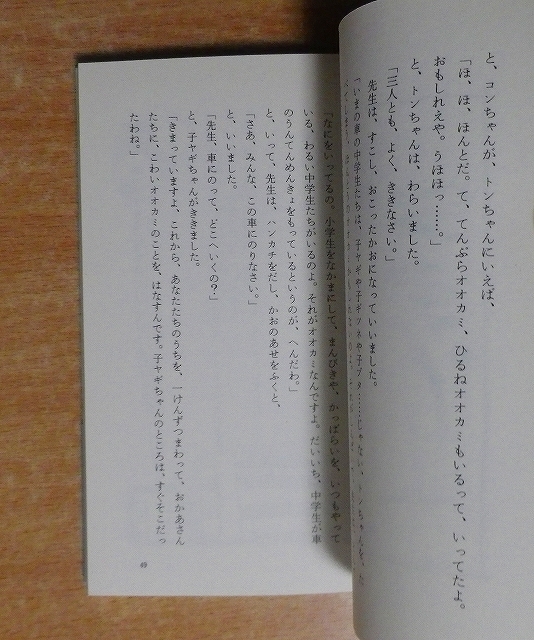 と、コンちゃんが、トンちゃんにいえば、
「ほ、ほ、ほんとだ。て、てんぷらオオカミ、ひるねオオカミもいるって、いってたよ。
おもしれえや。うほほっ……。」
と、トンちゃんは、わらいました。
「三人とも、よく、ききなさい。」
先生は、すこし、おこったかおになっていいました。
「いまの車の中学生たちは、子ヤギや子ギツネや子ブタ……じゃない、トンちゃんを、
「なにをいってるの。小学生をなかまにして、まんびきや、かっぱらいを、いつもやって
いる、わるい中学生たちがいるのよ。それがオオカミなんですよ。だいいち、中学生が車
のうんてんめんきょをもっているというのが、へんだわ。」
と、いって、先生は、ハンカチをだし、かおのあせをふくと、
「さあ、みんな、この車にのりなさい。」
と、いいました。
「先生、車にのって、どこへいくの？」
と、子ヤギちゃんがききました。
「きまっていますよ、これから、あなたたちのうちを、一けんずつまわって、おかあさん
たちに、こわいオオカミのことを、はなすんです。子ヤギちゃんのところは、すぐそこだっ
たわね。」
49